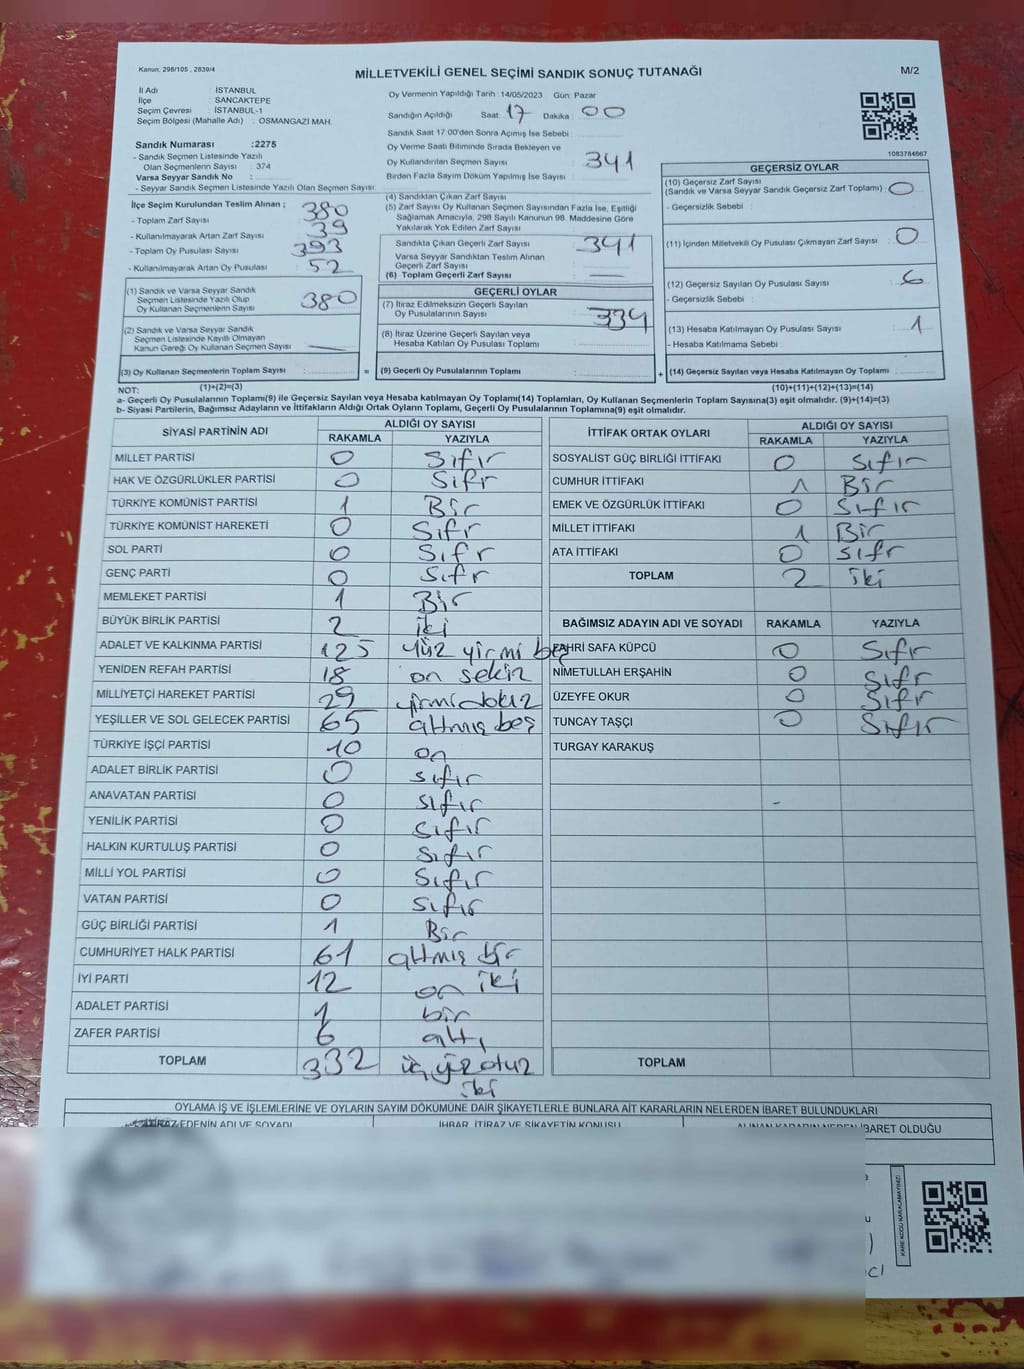 Kanun: 298/105 , 2839/4
MİLLETVEKİLİ GENEL SEÇİMİ SANDIK SONUÇ TUTANAĞI
M/2
İl Adı : İSTANBUL
İlçe : SANCAKTEPE
Seçim Çevresi : İSTANBUL-1
Seçim Bölgesi (Mahalle Adı) : OSMANGAZİ MAH.
Sandık Numarası :2275
- Sandık Seçmen Listesinde Yazılı
Olan Seçmenlerin Sayısı : 374
Varsa Seyyar Sandık No :
- Seyyar Sandık Seçmen Listesinde Yazılı Olan Seçmen Sayısı:
Oy Vermenin Yapıldığı Tarih :14/05/2023 Gün: Pazar
Sandığın Açıldığı Saat: 17 Dakika : 00
Sandık Saat 17:00'den Sonra Açımış İse Sebebi :
Oy Verme Saati Bitiminde Sırada Bekleyen ve
Oy Kullandırılan Seçmen Sayısı : 341
Birden Fazla Sayım Döküm Yapılmış İse Sayısı :
1083784667
İlçe Seçim Kurulundan Teslim Alınan ;
- Toplam Zarf Sayısı : 380
- Kullanılmayarak Artan Zarf Sayısı : 39
- Toplam Oy Pusulası Sayısı : 393
- Kullanılmayarak Artan Oy Pusulası : 52
(1) Sandık ve Varsa Seyyar Sandık
Seçmen Listesinde Yazılı Olup
Oy Kullanan Seçmenlerin Sayısı : 380
(2) Sandık ve Varsa Seyyar Sandık
Seçmen Listesinde Kayıtlı Olmayan
Kanun Gereği Oy Kullanan Seçmen Sayısı : —
(3) Oy Kullanan Seçmenlerin Toplam Sayısı :
(4) Sandıktan Çıkan Zarf Sayısı :
(5) Zarf Sayısı Oy Kullanan Seçmen Sayısından Fazla İse, Eşitliği
Sağlamak Amacıyla, 298 Sayılı Kanunun 98. Maddesine Göre
Yakılarak Yok Edilen Zarf Sayısı :
Sandıkta Çıkan Geçerli Zarf Sayısı : 341
Varsa Seyyar Sandıktan Teslim Alınan
Geçerli Zarf Sayısı :
(6) Toplam Geçerli Zarf Sayısı : —
GEÇERLİ OYLAR
(7) İtiraz Edilmeksizin Geçerli Sayılan
Oy Pusulalarının Sayısı : 334
(8) İtiraz Üzerine Geçerli Sayılan veya
Hesaba Katılan Oy Pusulası Toplamı :
= (9) Geçerli Oy Pusulalarının Toplamı :
GEÇERSİZ OYLAR
(10) Geçersiz Zarf Sayısı
(Sandık ve Varsa Seyyar Sandık Geçersiz Zarf Toplamı) : 0
- Geçersizlik Sebebi :
(11) İçinden Milletvekili Oy Pusulası Çıkmayan Zarf Sayısı : 0
(12) Geçersiz Sayılan Oy Pusulası Sayısı : 6
- Geçersizlik Sebebi :
(13) Hesaba Katılmayan Oy Pusulası Sayısı : 1
- Hesaba Katılmama Sebebi :
+ (14) Geçersiz Sayılan veya Hesaba Katılmayan Oy Pusulası Toplamı :
NOT: (1)+(2)=(3) (10)+(11)+(12)+(13)=(14)
a- Geçerli Oy Pusulalarının Toplamı(9) ile Geçersiz Sayılan veya Hesaba katılmayan Oy Toplamı(14) Toplamları, Oy Kullanan Seçmenlerin Toplam Sayısına(3) eşit olmalıdır. (9)+(14)=(3)
b- Siyasi Partilerin, Bağımsız Adayların ve İttifakların Aldığı Ortak Oyların Toplamı, Geçerli Oy Pusulalarının Toplamına(9) eşit olmalıdır.
SİYASİ PARTİNİN ADI ALDIĞI OY SAYISI
RAKAMLA YAZIYLA
MİLLET PARTİSİ 0 Sıfır
HAK VE ÖZGÜRLÜKLER PARTİSİ 0 Sıfr
TÜRKİYE KOMÜNİST PARTİSİ 1 Bir
TÜRKİYE KOMÜNİST HAREKETİ 0 Sıfr
SOL PARTİ 0 Sıfr
GENÇ PARTİ 0 Sıfr
MEMLEKET PARTİSİ 1 Bir
BÜYÜK BİRLİK PARTİSİ 2 iki
ADALET VE KALKINMA PARTİSİ 125 yüz yirmi beş
YENİDEN REFAH PARTİSİ 18 on sekiz
MİLLİYETÇİ HAREKET PARTİSİ 29 yirmidokuz
YEŞİLLER VE SOL GELECEK PARTİSİ 65 altmış beş
TÜRKİYE İŞÇİ PARTİSİ 10 on
ADALET BİRLİK PARTİSİ 0 sıfır
ANAVATAN PARTİSİ 0 sıfır
YENİLİK PARTİSİ 0 Sıfır
HALKIN KURTULUŞ PARTİSİ 0 Sıfır
MİLLİ YOL PARTİSİ 0 Sıfır
VATAN PARTİSİ 0 Sıfır
GÜÇ BİRLİĞİ PARTİSİ 1 Bir
CUMHURİYET HALK PARTİSİ 61 altmış bir
İYİ PARTİ 12 on iki
ADALET PARTİSİ 1 bir
ZAFER PARTİSİ 6 altı
TOPLAM 332 üç yüz otuz
iki
İTTİFAK ORTAK OYLARI ALDIĞI OY SAYISI
RAKAMLA YAZIYLA
SOSYALIST GÜÇ BİRLİĞİ İTTİFAKI 0 Sıfır
CUMHUR İTTİFAKI 1 Bir
EMEK VE ÖZGÜRLÜK İTTİFAKI 0 Sıfır
MİLLET İTTİFAKI 1 Bir
ATA İTTİFAKI 0 Sıfr
TOPLAM 2 iki
BAĞIMSIZ ADAYIN ADI VE SOYADI RAKAMLA YAZIYLA
FAHRİ SAFA KÜPCÜ 0 Sıfır
NİMETULLAH ERŞAHİN 0 Sıfr
ÜZEYFE OKUR 0 Sıfr
TUNCAY TAŞÇI 0 Sıfır
TURGAY KARAKUŞ
-
TOPLAM
OYLAMA İŞ VE İŞLEMLERİNE VE OYLARIN SAYIM DÖKÜMÜNE DAİR ŞİKAYETLERLE BUNLARA AİT KARARLARIN NELERDEN İBARET BULUNDUKLARI
İTİRAZ EDENİN ADI VE SOYADI İHBAR, İTİRAZ VE ŞİKAYETİN KONUSU ALINAN KARARIN NEDEN İBARET OLDUĞU
KARE KODU KARALAMAYINIZ!